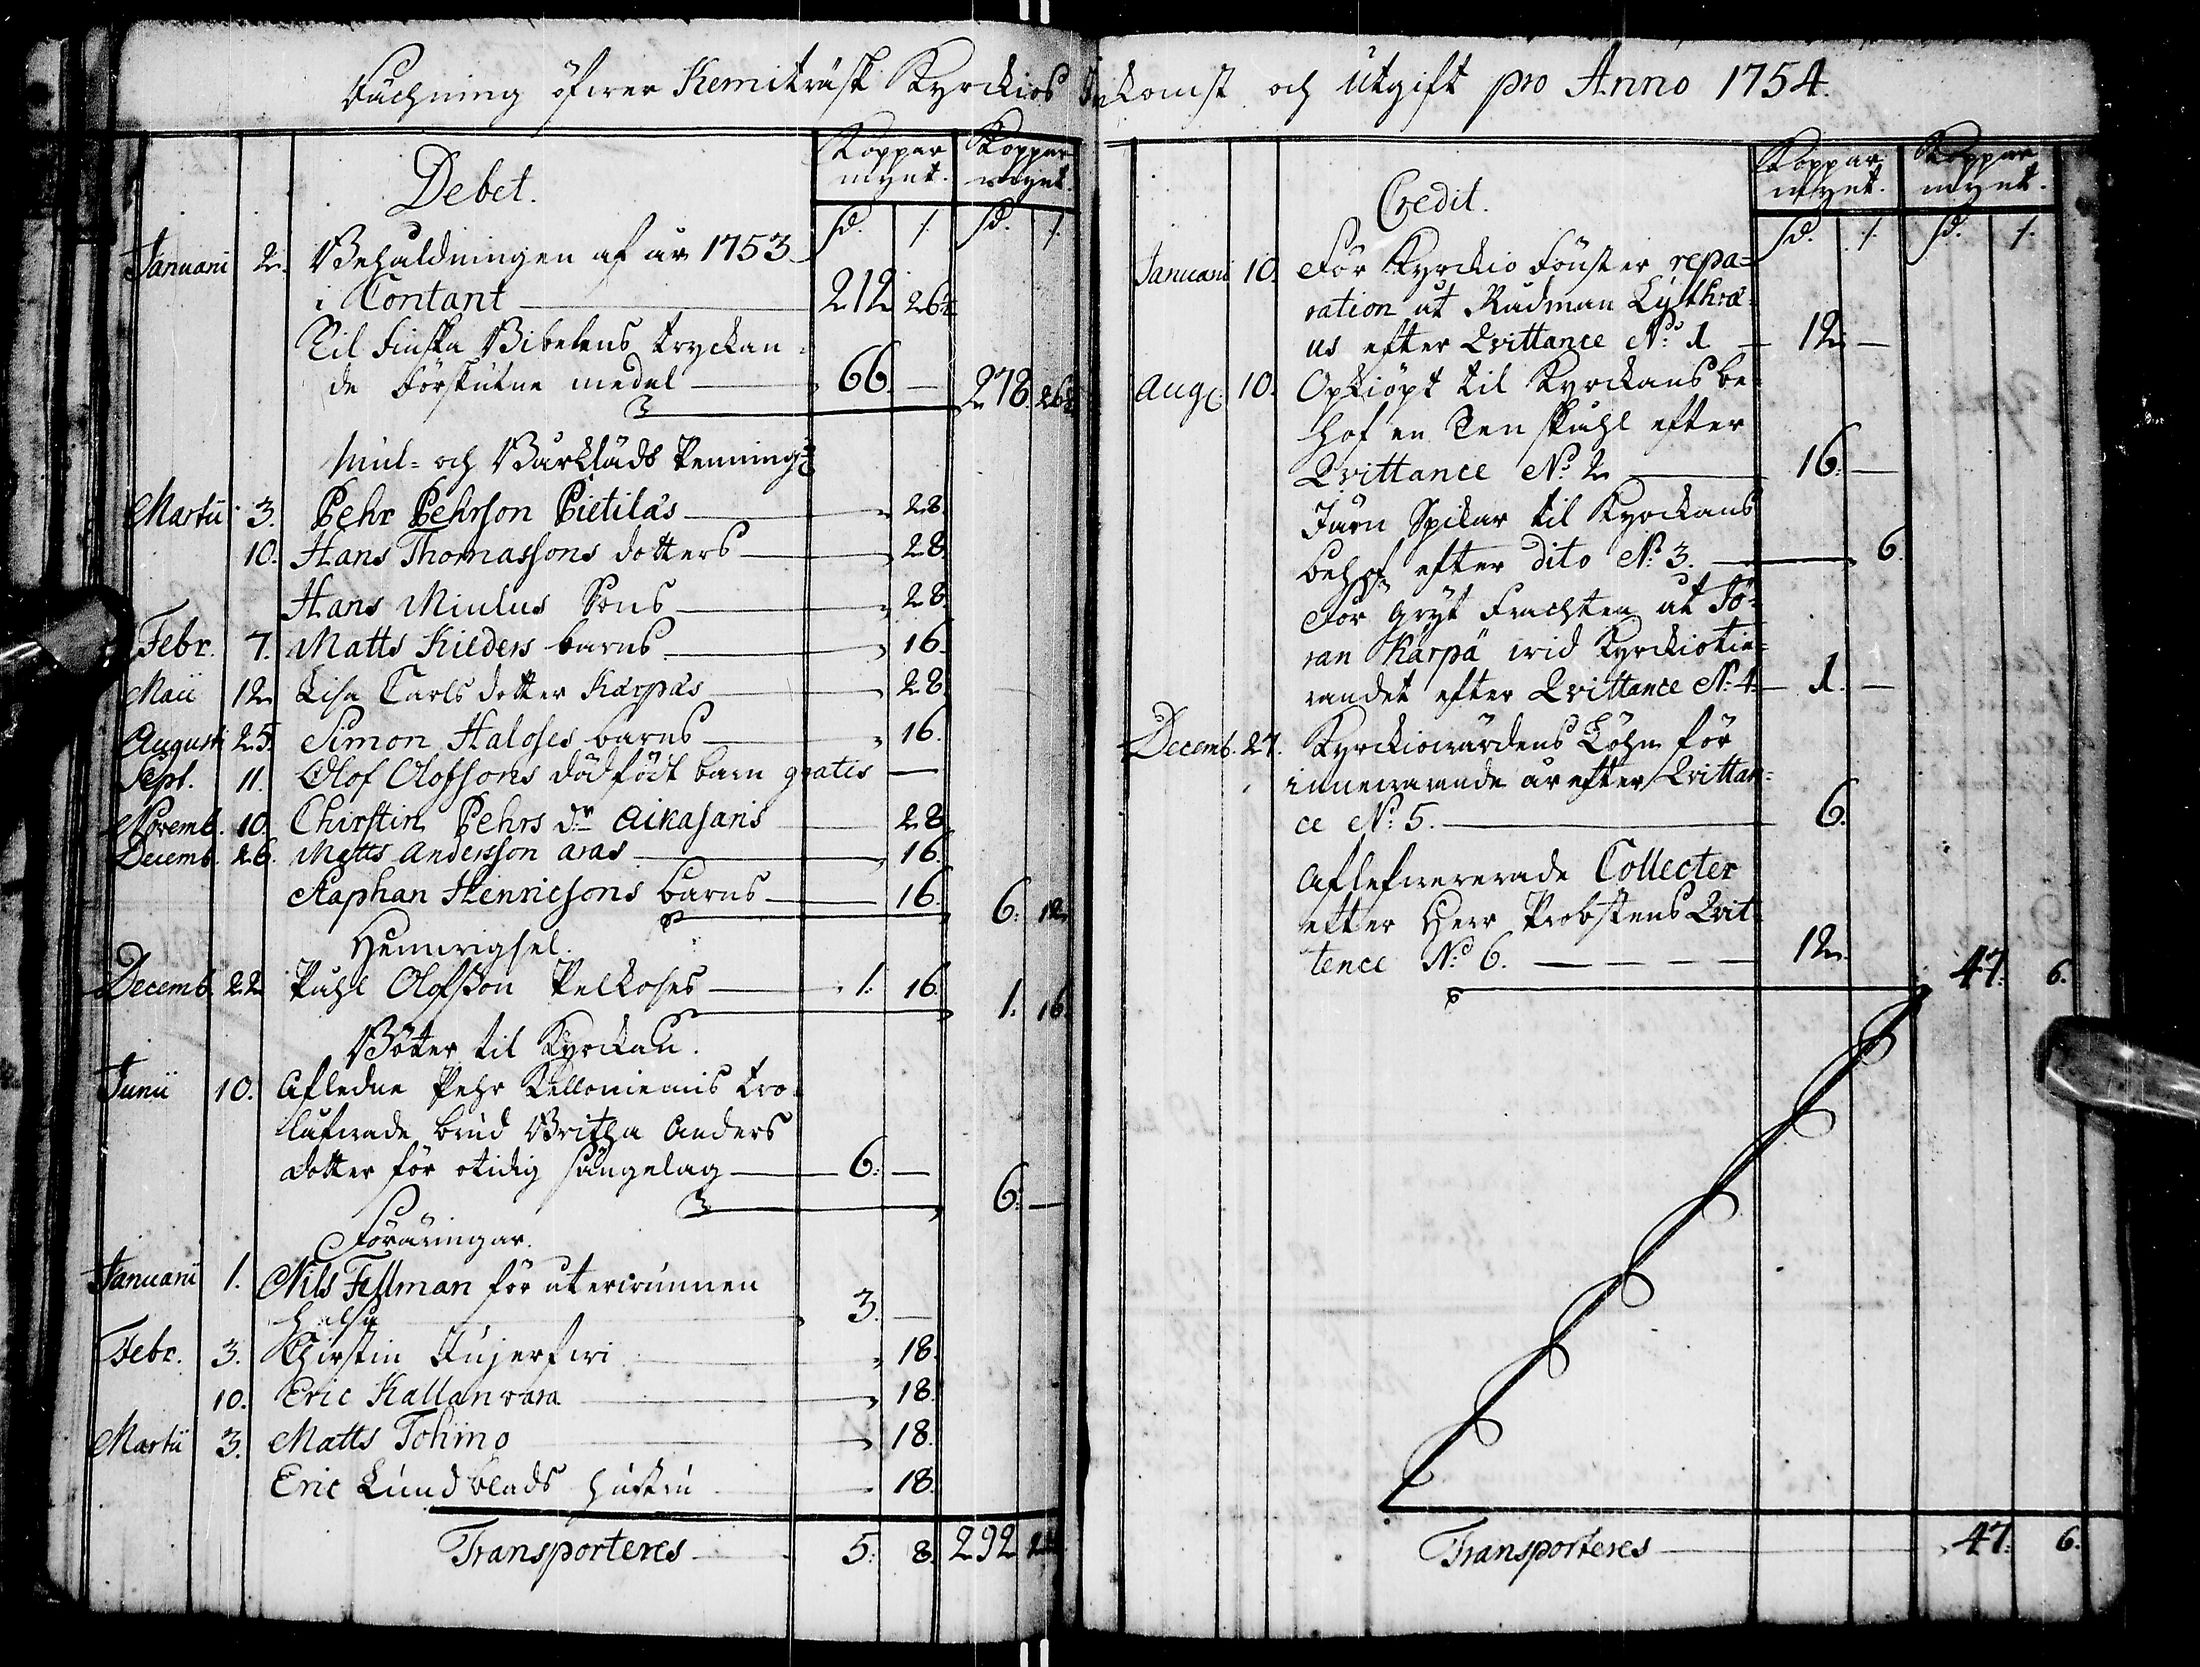 Räckning öfwer Kemiträsk Kyrckios Inkomst och Utgift pro Anno 1754.
Debet.
Koppar mynt. Koppar mynt.
sd. 1. sd. 1.
Januarii 2. Behåldningen af år 1753
i Contant 212 26½
Til Finska Bibelens tryckan-
de Förskutne medel 66. — 278. 26½
Mul- och Bårkläds Penning:r
Martii 3. Pehr Pehrson Pietiläs „ 28.
10. Hans Thomassons dotters „ 28
Hans Miulus Sons „ 28.
Febr. 7. Matts Kilders barns „ 16.
Maii 12. Lisa Carls dotter Karpäs „ 28.
Augusti 25. Simon Haloses barns „ 16.
Sept. 11. Olof Olofsons dödfödt barn gratis —
Novemb. 10. Chirstin Pehrs dr Aikasaris 28
Decemb. 26. Matts Andersson aras „ 16.
Staphan Henricsons barns 16. 6. 12.
Hemwigsel.
Decemb. 22 Påhl Olofsson Pelkoses 1. 16. 1. 16.
Böter til Kyrckan.
Junii 10. Afledne Pehr Kelloniemis tro-
låfwade brud Britha Anders
dotter för otidig sängelag 6. — 6. —
Föräringar.
Januarii 1. Nils Fellman för återwunnen
helsa 3. —
Febr. 3. Chirstin Kujerfwi „ 18.
10. Eric Kallanvara „ 18.
Martii 3. Matts Tohmo „ 18.
Eric Lundblads hustru 18.
Transporteres 5. 8. 292
Credit.
Koppar mynt. Koppar mynt.
sd. 1. sd. 1.
Januarii 10. För Kyrckio Fönster repa-
ration åt Rådman Lythræ-
us efter Qvittance No 1 — 12. —
Aug. 10. Opkiöpt til Kyrckans be-
hof en Ten skåhl efter
Qvittance No 2 16. —
Järn Spikar til Kyrckans
behof efter dito No 3. „ 6.
För Gryt Frachten åt Jö-
ran Karpä wid Kyrckiotiä-
randet efter Qvittance No 4. — 1. —
Decemb. 27. Kyrckiowärdens Löhn för
innewarande år efter Qvittan-
ce No 5. 6.
Aflefwererade Collecter
efter Herr Probstens Qvit-
tence No 6. 12. 47. 6.
Transporteres 47. 6.